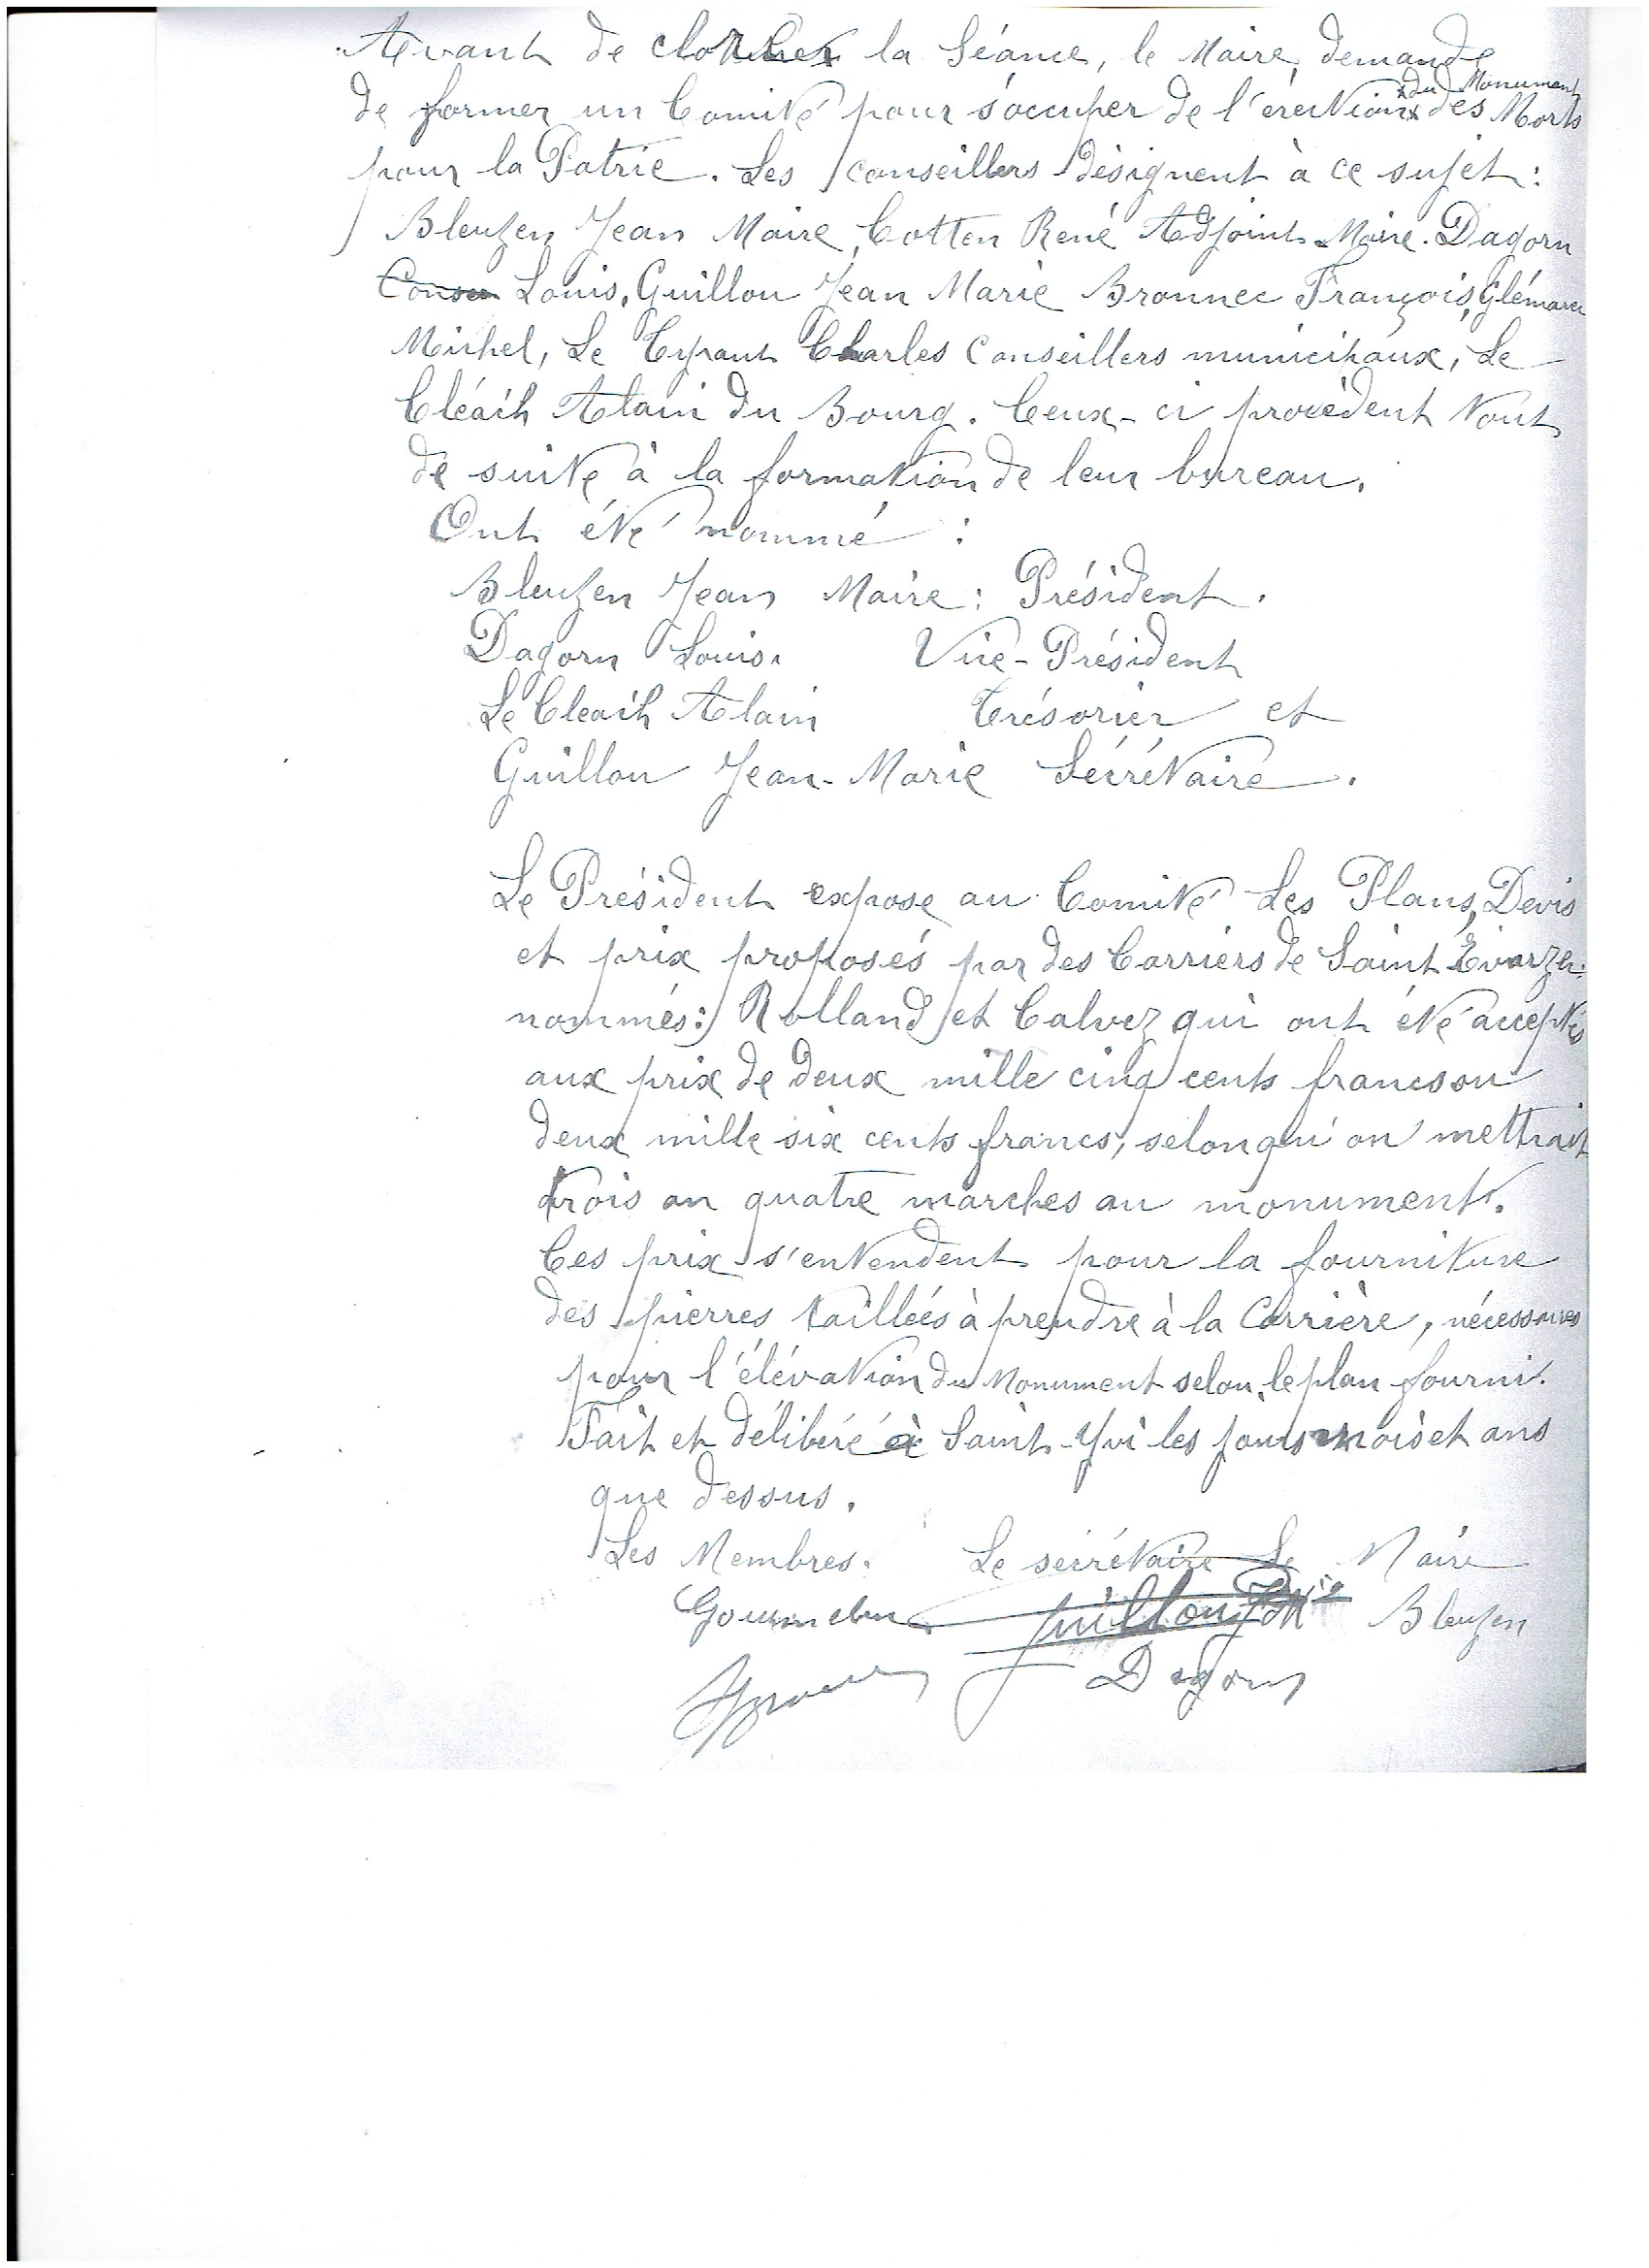 Avant de la Séance, le Maire, demande
de former un Comité pour s'occuper de l'érection x des Morts
x du Monument
pour la Patrie. Les conseillers désignent à ce sujet :
Bleuzen Jean Maire, Cotten René Adjoint-Maire. Dagorn
Louis, Guillou Jean Marie Bronnec François, Glémarec
Michel, Le Tyrant Charles Conseillers municipaux, Le
Cléach Alain du Bourg. Ceux-ci procèdent tout
de suite à la formation de leur bureau.
Ont été nommé :
Bleuzen Jean Maire : Président.
Dagorn Louis. Vice-Président
Le Cleach Alain Trésorier et
Guillou Jean-Marie Sécrétaire.
Le Président expose au Comité Les Plans, Devis
et prix proposés par des Carriers de Saint Evarzec
nommés : Rolland et Calvez qui ont été acceptés
aux prix de deux mille cinq cents francs ou
deux mille six cents francs, selon qu'on mettrait
trois ou quatre marches au monument.
Ces prix s'entendent pour la fourniture
des pierres taillées à prendre à la Carrière, nécessaires
pour l'élévation du Monument selon le plan fourni.
Fait et délibéré à Saint-Yvi les jours mois et ans
que dessus.
Les Membres. Le sécrétaire Le Maire
Guillou Bleuzen
Dagorn